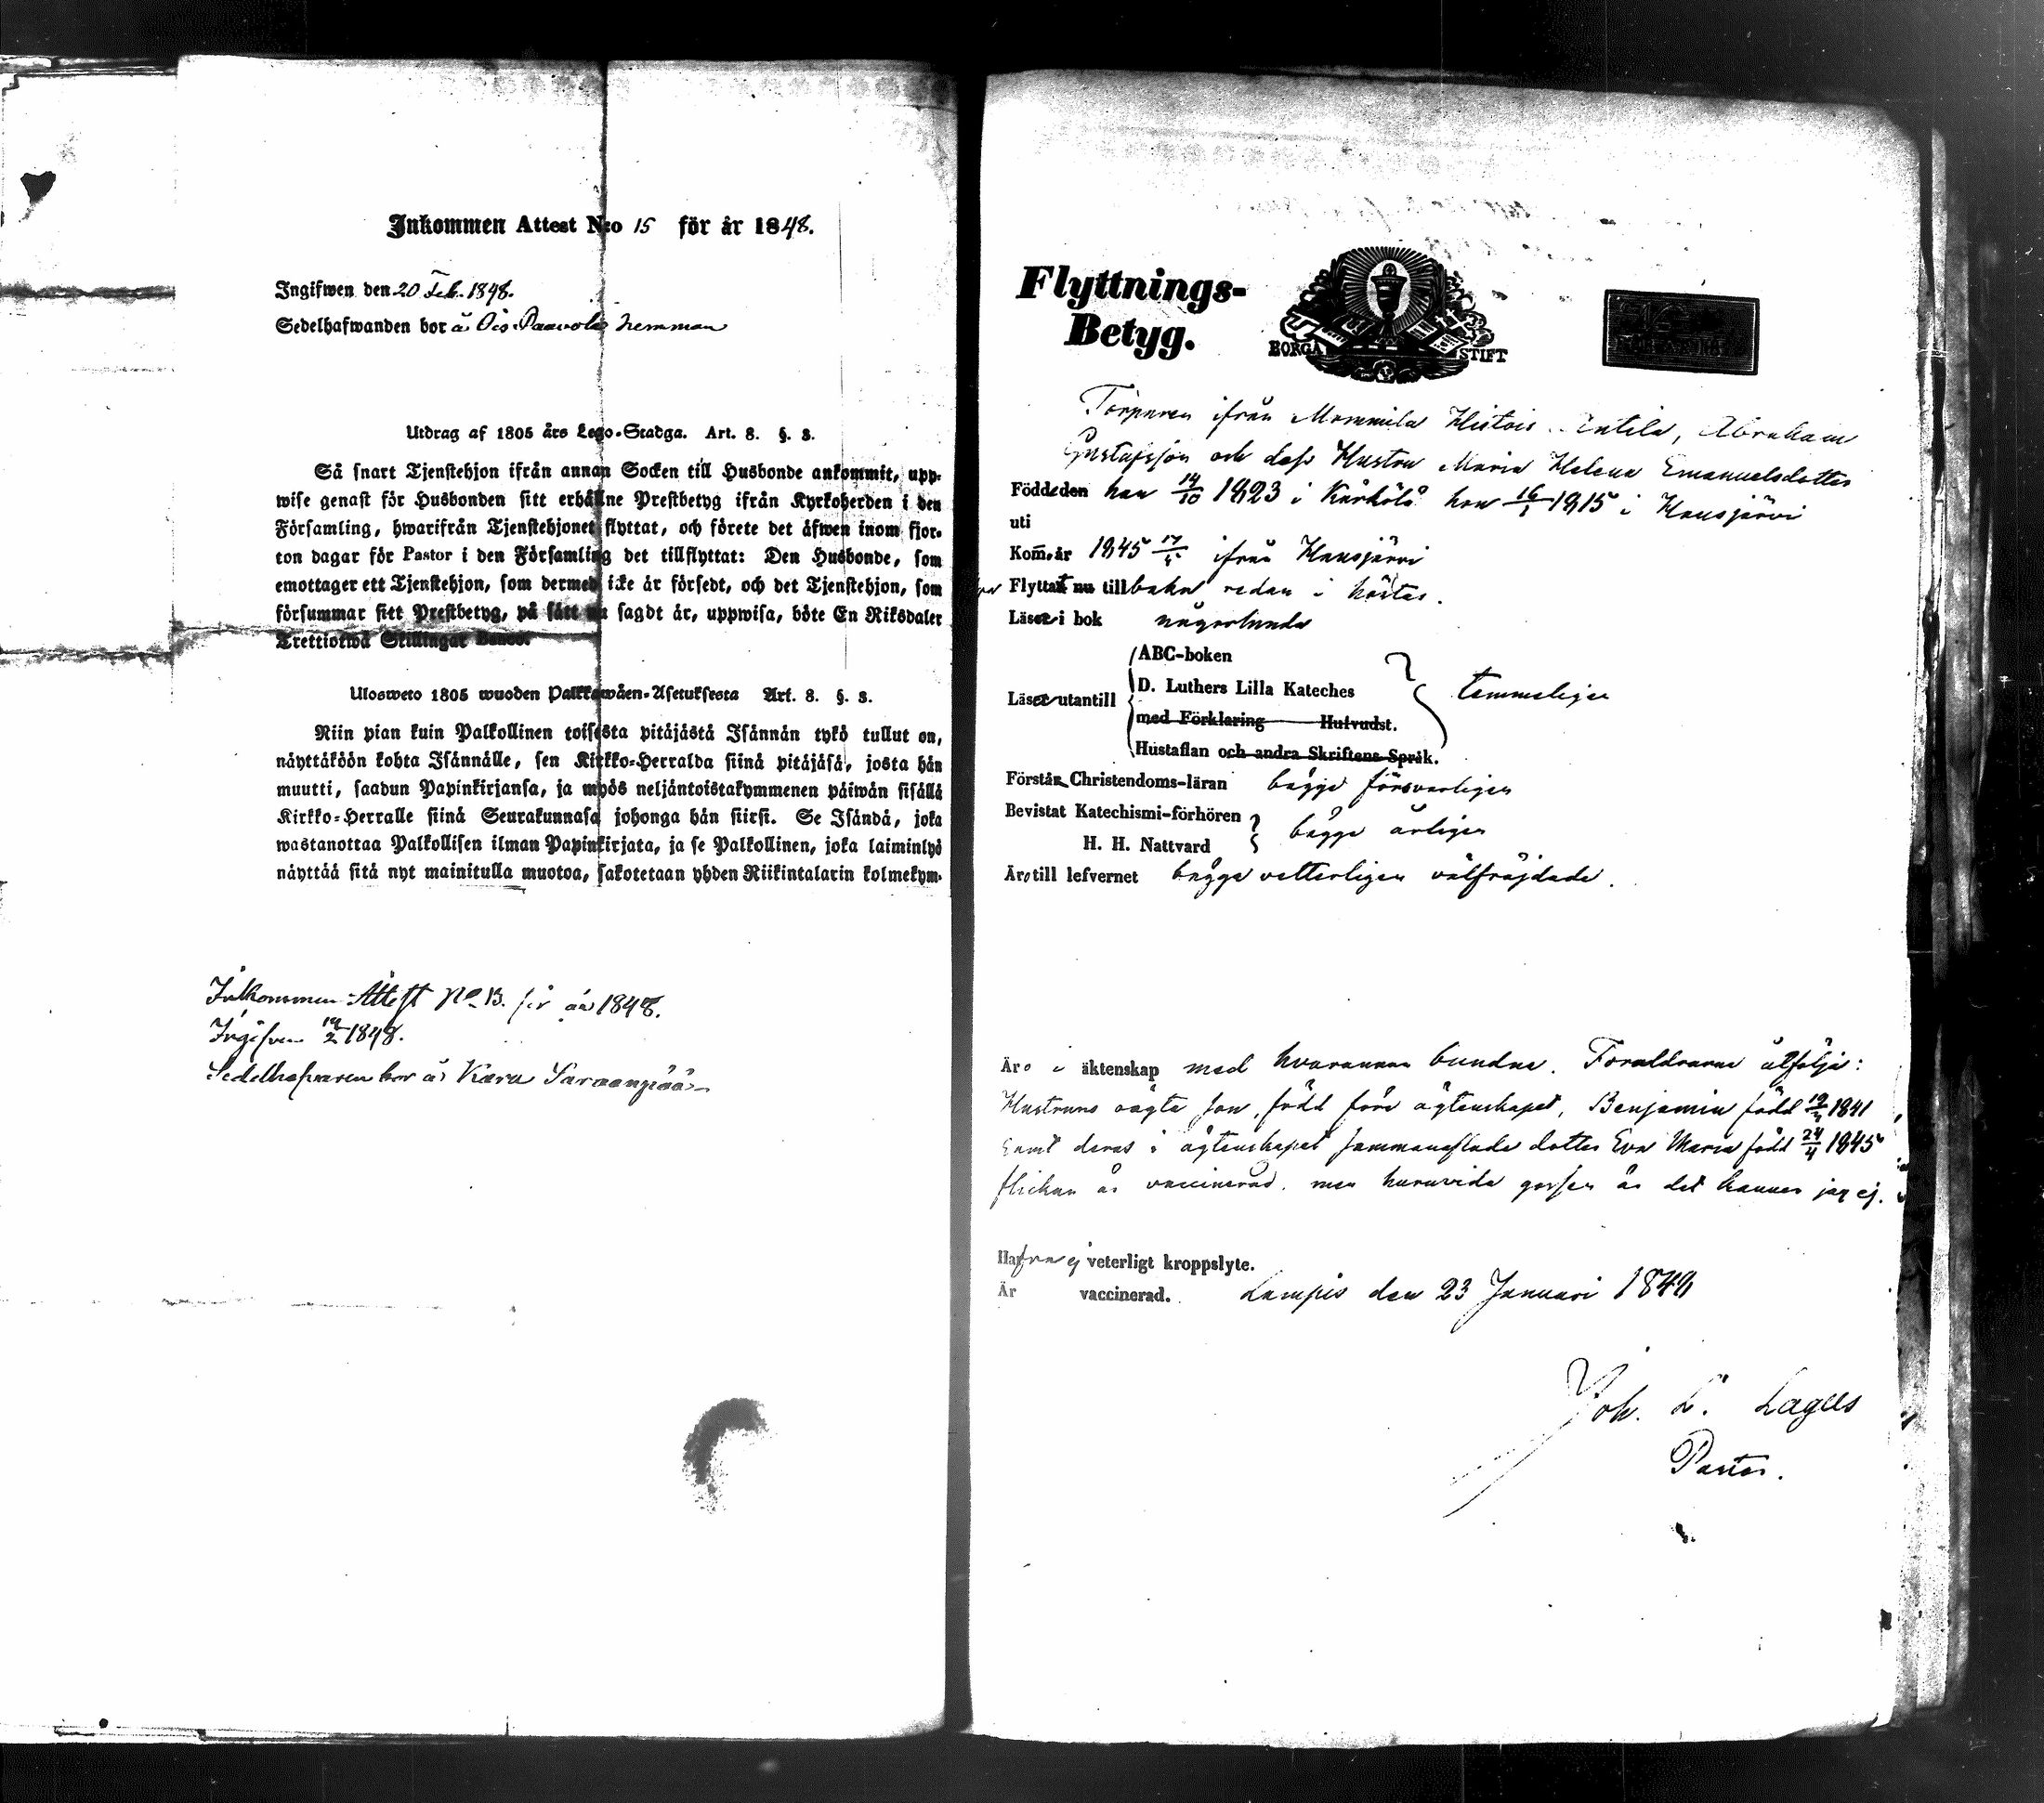 Inkommen Attest N:o 15 för år 1848.
Ingifwen den 20 Feb. 1848.
Sedelhafwanden bor å Ois Paavola hemman
Utdrag af 1805 års Lego-Stadga. Art. 8. §. 3.
Så snart Tjenstehjon ifrån annan Socken till Husbonde ankommit, upp-
wise genast för Husbonden sitt erhållne Prestbetyg ifrån Kyrkoherden i den
Församling, hwarifrån Tjenstehjonet flyttat, och förete det äfwen inom fjor-
ton dagar för Pastor i den Församling det tillflyttat: Den Husbonde, som
emottager ett Tjenstehjon, som dermed icke är försedt, och det Tjenstehjon, som
försummar sitt Prestbetyg, på sätt nu sagdt är, uppwisa, böte En Riksdaler
Trettiotwå Skillingar Banco.
Ulosweto 1805 wuoden Palkkawäen-Asetuksesta Art. 8. §. 3.
Niin pian kuin Palkollinen toisesta pitäjästä Isännän tykö tullut on,
näyttäköön kohta Isännälle, sen Kirkko-Herralda siinä pitäjäsä, josta hän
muutti, saadun Papinkirjansa, ja myös neljäntoistakymmenen päiwän sisällä
Kirkko-Herralle siinä Seurakunnasa johonga hän siirsi. Se Isändä, joka
wastanottaa Palkollisen ilman Papinkirjata, ja se Palkollinen, joka laiminlyö
näyttää sitä nyt mainitulla muotoa, sakotetaan yhden Riikintalarin kolmekym-
Inkommen Attest No 13. för år 1848.
Ingifven 19/2 1848.
Sedelhafvaren bor å Kara
Flyttnings-
Betyg.
BORGÅ STIFT
Torparen ifrån Mommila Histois Antila, Abraham
Gustafsson och dess Hustru Maria Helena Emanuelsdotter
Födde den han 14/10 1823 i Kärkölä hon 16/1 1815 i Hausjärvi
uti
Kom. år 1845 ifrån Hausjärvi
Flyttat nu tillbaka redan i höstas.
Läser i bok någorlunda
ABC-boken
D. Luthers Lilla Kateches
Läser utantill temmeligen
med Förklaring Hufvudst.
Hustaflan och andra Skriftens Språk.
Förstår Christendoms-läran bägge försvarligen
Bevistat Katechismi-förhören
bägge årligen
H. H. Nattvard
Äro till lefvernet bägge vetterligen välfräjdade.
Äro i äktenskap med hvarannan bundne. Föräldrarne åtfölja:
Hustruns oägta son, född före ägtenskapet, Benjamin född 1841
samt deras i ägtenskapet sammanaflade dotter Eva Maria född 24/4 1845
flickan är vaccinerad, men huruvida gossen är det känner jag ej.
Hafva ej veterligt kroppslyte.
Är vaccinerad. Lampis den 23 Januari 1848
Joh. L. Lagus
Pastor.